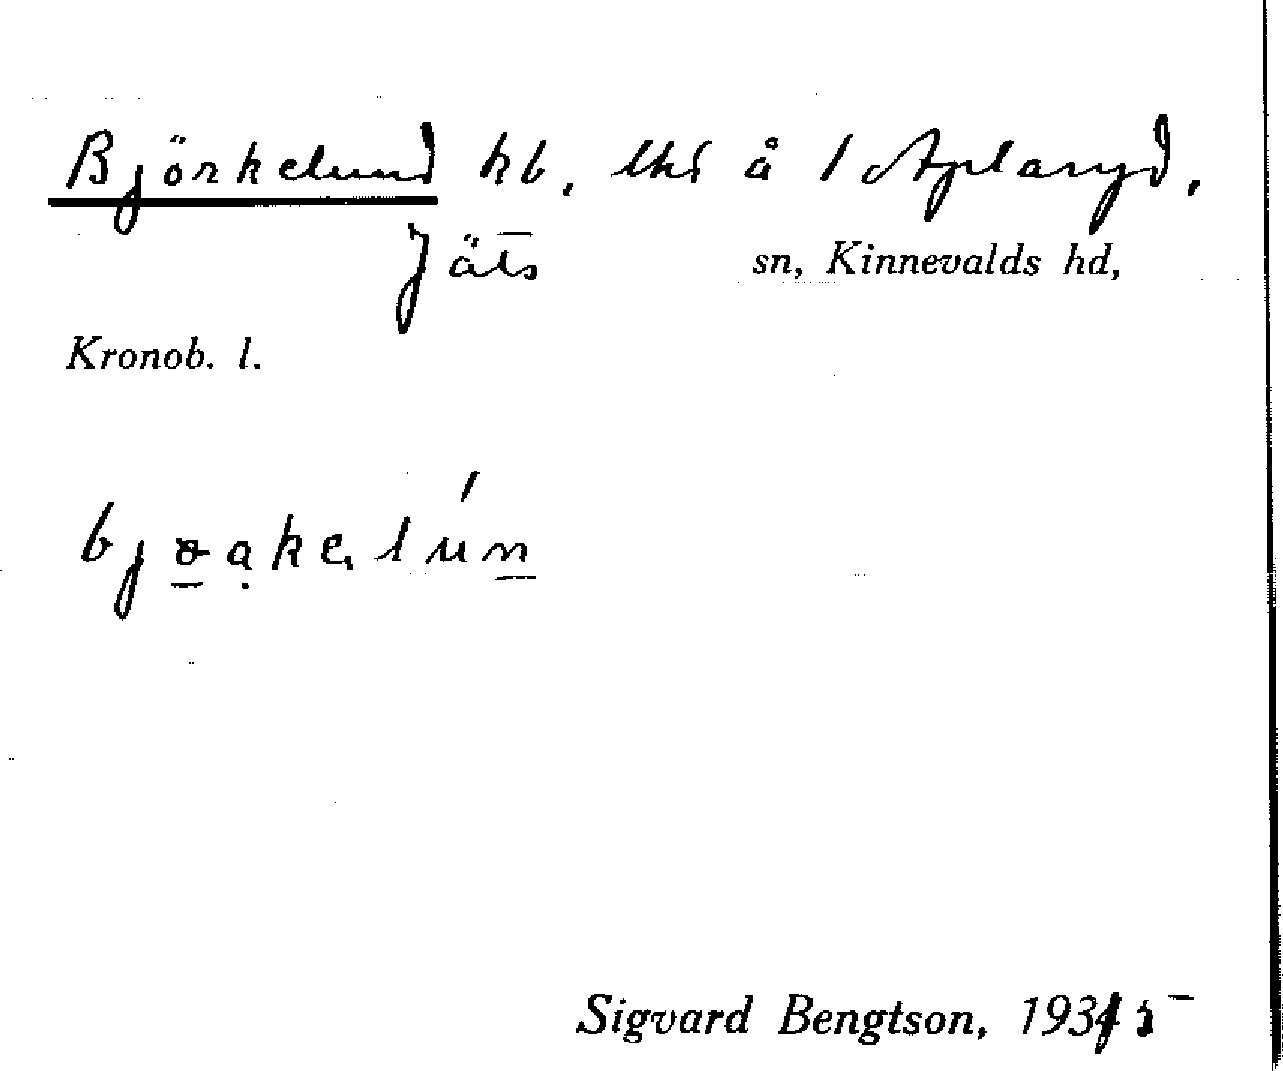 Björkelund hb, lhs å 1 Aplaryd,
Jäts sn, Kinnevalds hd,
Kronob. l.
Sigvard Bengtson, 1935